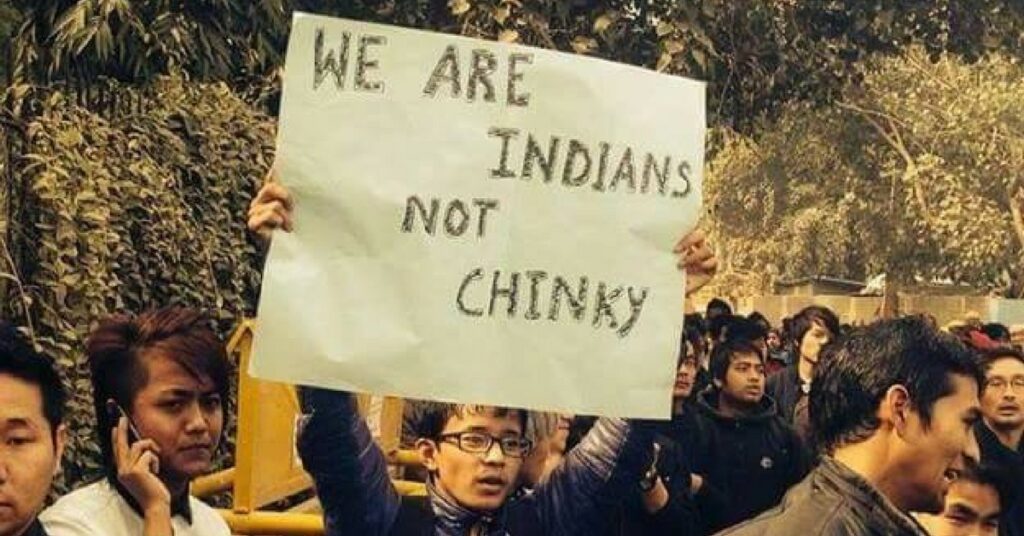 WE ARE
INDIANS
NOT
CHINKY